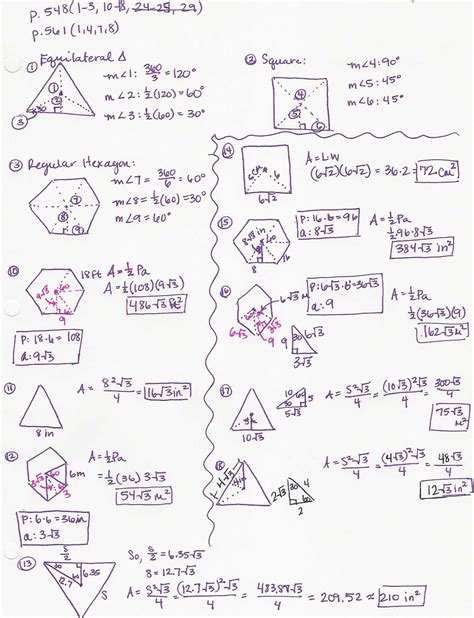 p. 548 (1-3, 10-18, 24-25, 29)
p. 561 (1,4,7,8)
① Equilateral Δ
1
2
30
③
m∠1: 360/3 = 120°
m∠2: ½(120) = 60°
m∠3: ½(60) = 30°
② Square:
4
5
6
m∠4: 90°
m∠5: 45°
m∠6: 45°
③ Regular Hexagon:
7
8
9
m∠7 = 360/6 = 60°
m∠8 = ½(60) = 30°
m∠9 = 60°
⑭
6√2
A = LW
(6√2)(6√2) = 36·2 = 72 cm²
⑮
8√3 in
60
8
16
P: 16·6 = 96
a: 8√3
A = ½Pa
½·96·8√3
384√3 in²
⑩
18ft
9√3
9
A = ½Pa
A = ½(108)(9√3)
486√3 ft²
P: 18·6 = 108
a: 9√3
⑯
6√3 M
6√3
3√3
9
30
6√3
P: 6√3·6 = 36√3
a: 9
A = ½Pa
½(36√3)(9)
162√3 M²
⑪
8in
A = 8²√3/4 = 16√3 in²
⑰
10√3
10
60
30
5
5√3
A = S²√3/4 = (10√3)²√3/4 = 300√3/4
75√3 M²
⑫
60
6m
3
A = ½Pa
= ½(36) 3√3
54√3 m²
P: 6·6 = 36in
a: 3√3
⑱
4√3
4in
2√3
30
4
2
A = S²√3/4 = (4√3)²√3/4 = 48√3/4
12√3 in²
⑬
S/2
12.7
6.35
S
So, S/2 = 6.35√3
S = 12.7√3
A = S²√3/4 = (12.7√3)²√3/4 = 483.87√3/4 = 209.52 ≈ 210 in²